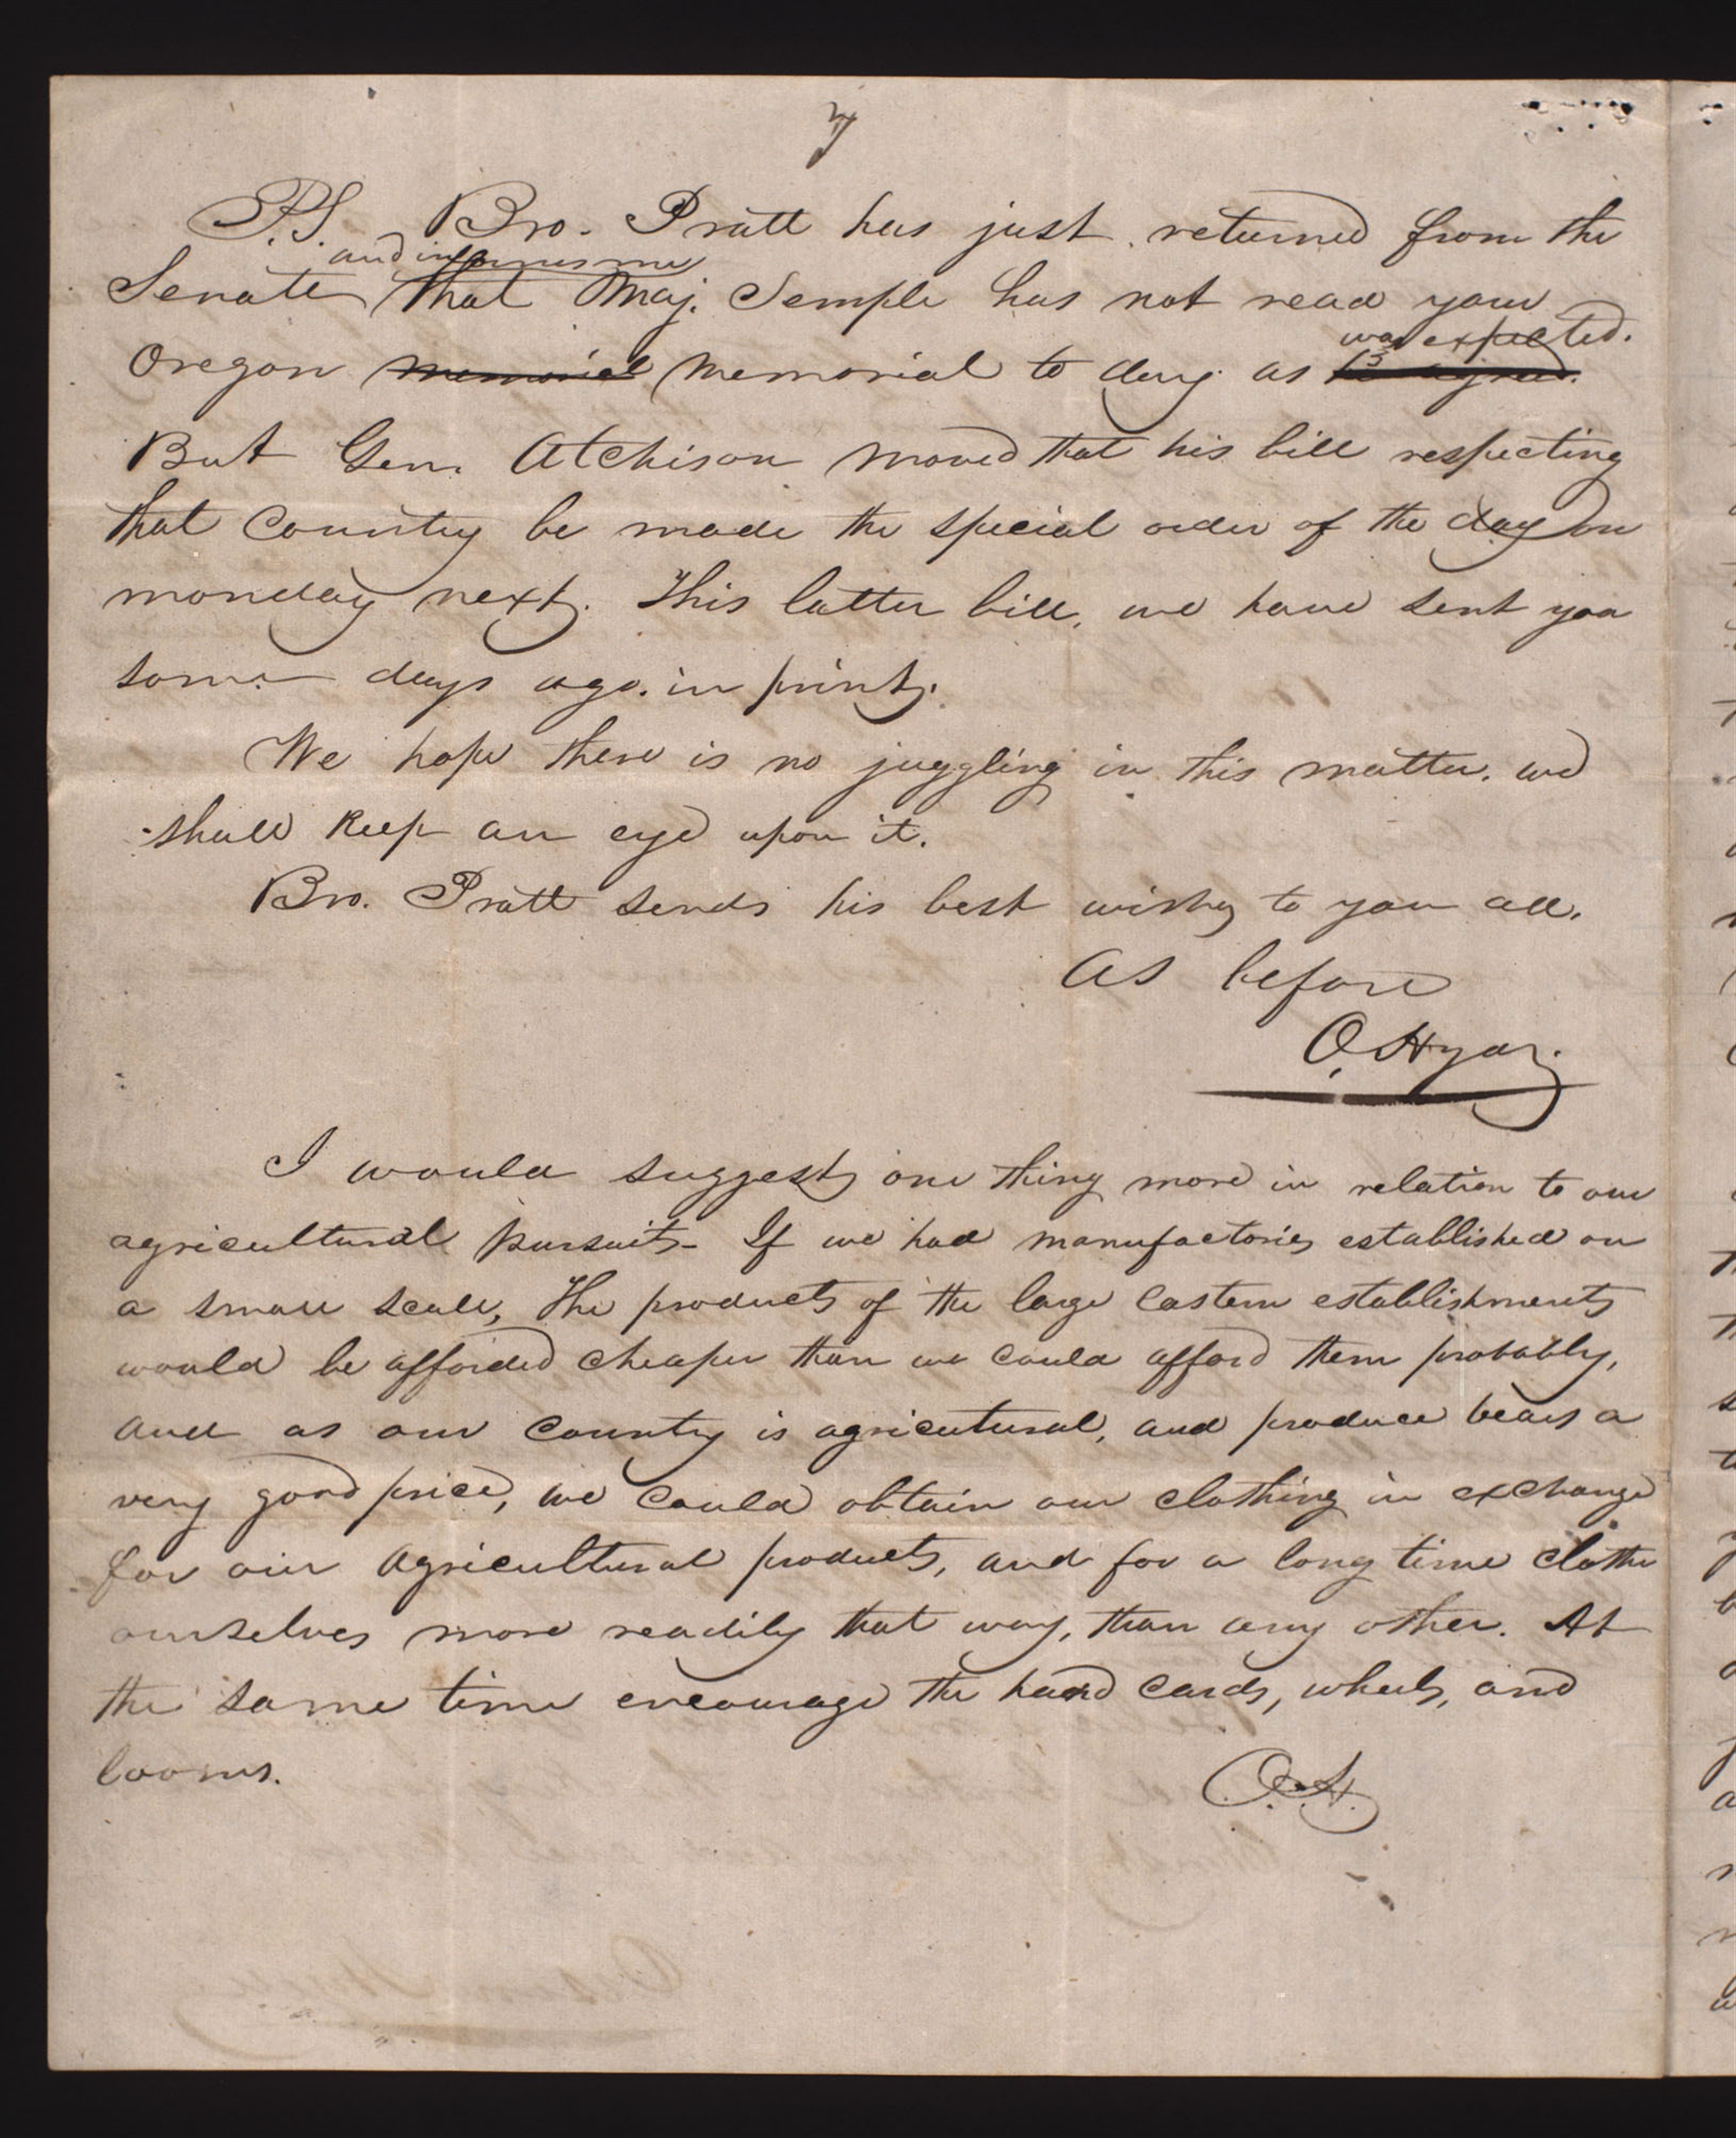 7
P.S. Bro. Pratt has just returned from the
and informs me
Senate that Maj. Semple has not read your
was expected.
Oregon memorial memorial to day as he agreed.
But Gen. Atchison moved that his bill respecting
that country be made the special order of the day on
monday next. This latter bill, we have sent you
some days ago. in print.
We hope there is no juggling in this matter. we
shall keep an eye upon it.
Bro. Pratt sends his best wishes to you all.
As before
O. Hyde.
I would suggest one thing more in relation to our
agricultural pursuits- If we had manufactories established on
a small scale, The products of the large Eastern establishments
would be afforded cheaper than we could afford them probably,
and as our country is agricutural, and produce bears a
very good price, we could obtain our clothing in exchange
for our agricultural products, and for a long time clothe
ourselves more readily that way, than any other. At
the same time encourage the hand cards, wheels, and
looms.
O.H.